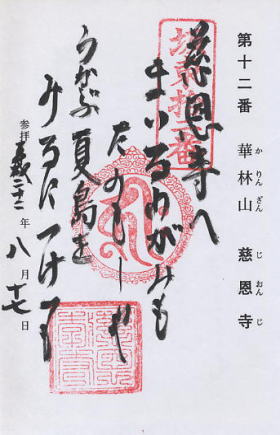 第十二番 華林山 慈恩寺
かりんざん じおんじ
坂東拾二番
慈恩寺へ
まいるわがみも
たのもしや
うかぶ夏島を
みるにつけても
参拝 年 八月十七日